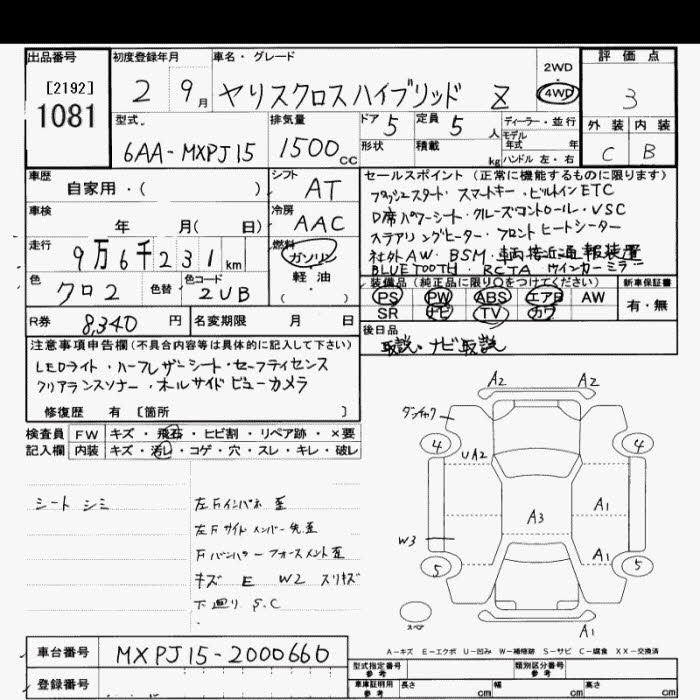 出品番号
[2192]
1081
初度登録年月
2 9月
車名・グレード
ヤリスクロスハイブリッド Z
2WD
・
4WD
評価点
3
外装 内装
C B
型式
6AA-MXPJ15
排気量
1500cc
ドア 5
定員 5人
形状
積載 kg
ディーラー・並行
モデル年式 年式
ハンドル 左・右
車歴
自家用・( )
シフト
AT
車検
年 月( 日)
冷房
AAC
走行
9万6千231km
燃料
ガソリン
・
軽・油
色
クロ2
色替
色コード
2UB
R券 8,340 円
名変期限 月 日
セールスポイント(正常に機能するものに限ります)
プッシュスタート・スマートキー・ビルトインETC
D席パワーシート・クルーズコントロール・VSC
ステアリングヒーター・フロントヒートシーター
社外AW・BSM・車両接近通報装置
BLUETOOTH・RCTA ウインカーミラー
装備品(純正品に限り○をつけてください)
PS PW ABS エアB AW
SR ナビ TV カワ
新車保証書
有・無
後日品
取説・ナビ取説
注意事項申告欄(不具合内容等は具体的に記入して下さい)
LEDライト・ハーフレザーシート・セーフティセンス
クリアランスソナー・オールサイドビューカメラ
修復歴 有 [箇所 ]
検査員記入欄
FW キズ・飛石・ヒビ割・リペア跡・×要
内装 キズ・汚レ・コゲ・穴・スレ・キレ・破レ
シート シミ
左Fインパネ 歪
左Fサイドメンバー先歪
Fバンパーフォースメント歪
キズ E W2 スリキズ
下廻り S.C
A2 A2
ダンチャク
4 4
UA2
A3
A1
W3
A1
5 5
スペア
A1
A-キズ E-エクボ U-凹み W-補修跡 S-サビ C-腐食 XX-交換済
車台番号 MXPJ15-2000660
登録番号
型式指定番号 参考
類別区分番号 参考
車庫証明用 参考 長さ cm 幅 cm 高さ cm